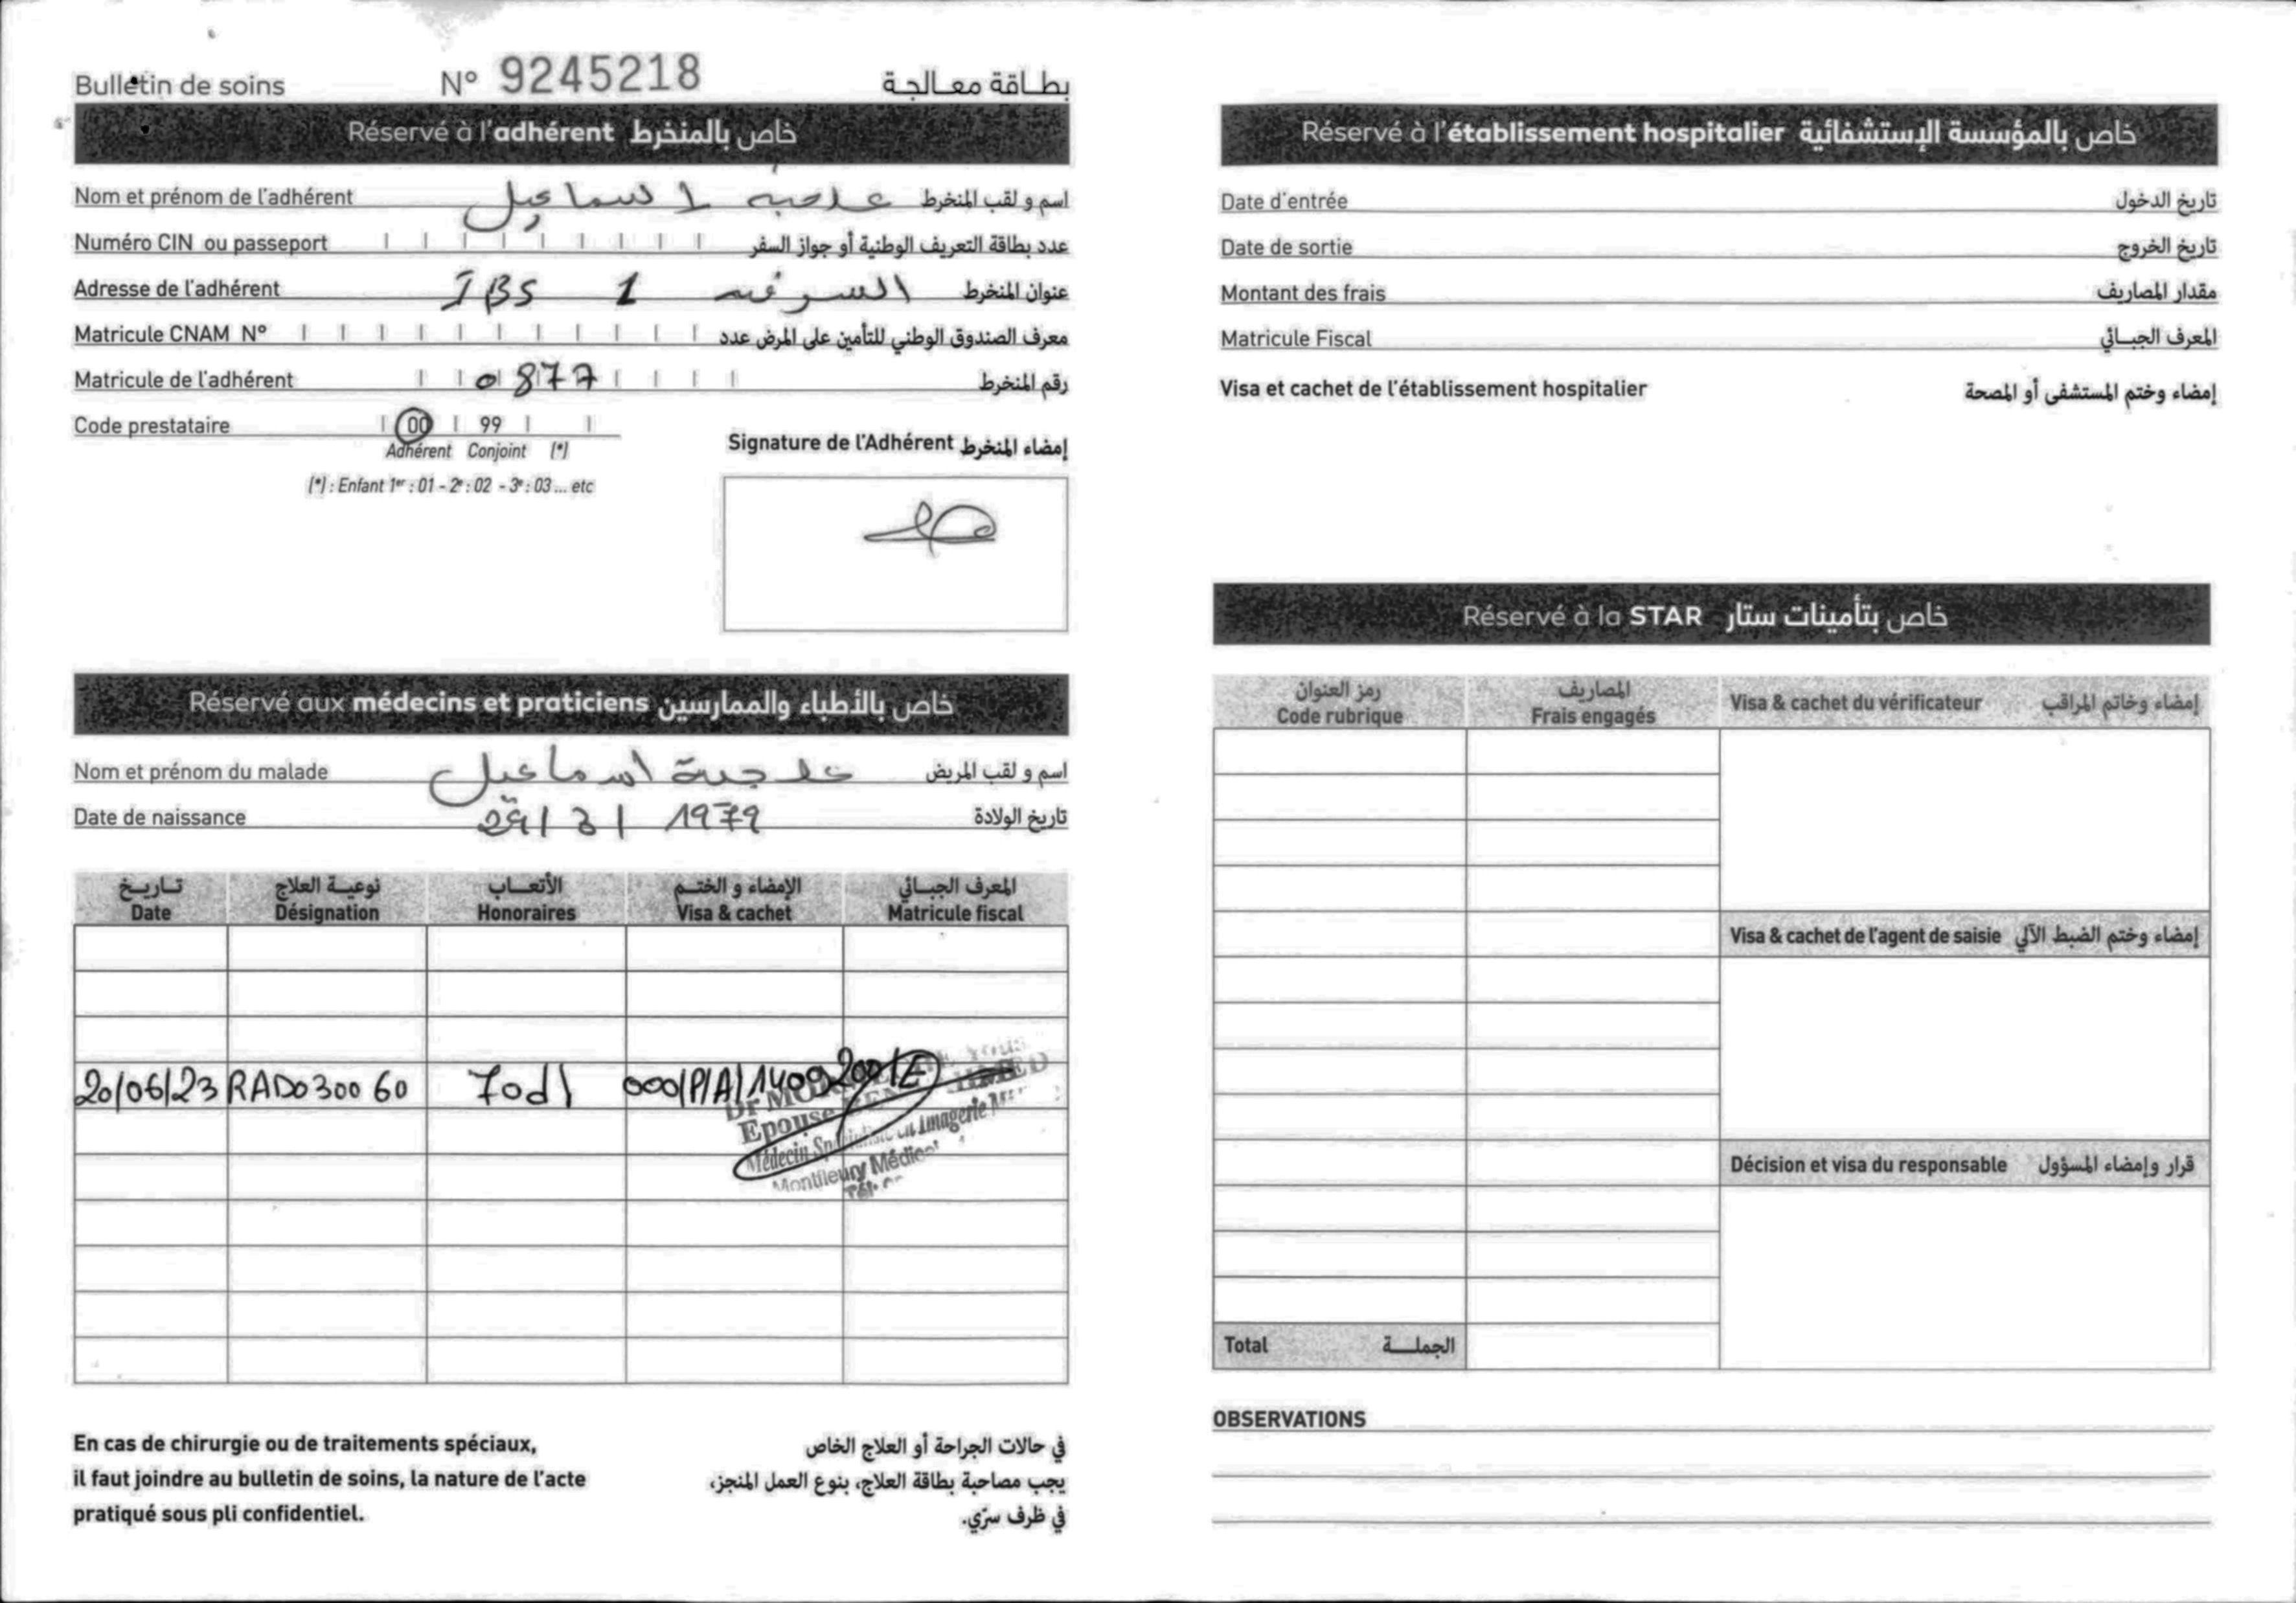 Bulletin de soins N° 9245218 بطاقة معالجة
Réservé à l'adhérent خاص بالمنخرط
Nom et prénom de l'adhérent اسماعيل اسم و لقب المنخرط
Numéro CIN ou passeport عدد بطاقة التعريف الوطنية أو جواز السفر
Adresse de l'adhérent IBS 1 عنوان المنخرط
Matricule CNAM N° معرف الصندوق الوطني للتأمين على المرض عدد
Matricule de l'adhérent 0877 رقم المنخرط
Code prestataire 00 99
Adhérent Conjoint (*)
(*) : Enfant 1er : 01 - 2e : 02 - 3e : 03 ... etc
Signature de l'Adhérent إمضاء المنخرط
Réservé aux médecins et praticiens خاص بالأطباء والممارسين
Nom et prénom du malade اسماعيل اسم و لقب المريض
Date de naissance 29/3/1979 تاريخ الولادة
تاريخ نوعية العلاج الأتعاب الإمضاء و الختم المعرف الجبائي
Date Désignation Honoraires Visa & cachet Matricule fiscal
20/06/23 RADO300 60 70d 000/P/A/1409200/E
Epouse
Médecin Imagerie
Montfleury Médical
En cas de chirurgie ou de traitements spéciaux,
il faut joindre au bulletin de soins, la nature de l'acte
pratiqué sous pli confidentiel.
في حالات الجراحة أو العلاج الخاص
يجب مصاحبة بطاقة العلاج، بنوع العمل المنجز،
في ظرف سرّي.
Réservé à l'établissement hospitalier خاص بالمؤسسة الإستشفائية
Date d'entrée تاريخ الدخول
Date de sortie تاريخ الخروج
Montant des frais مقدار المصاريف
Matricule Fiscal المعرف الجبائي
Visa et cachet de l'établissement hospitalier إمضاء وختم المستشفى أو المصحة
Réservé à la STAR خاص بتأمينات ستار
رمز العنوان المصاريف
Code rubrique Frais engagés Visa & cachet du vérificateur إمضاء وخاتم المراقب
Visa & cachet de l'agent de saisie إمضاء وختم الضبط الآلي
Décision et visa du responsable قرار وإمضاء المسؤول
Total الجملة
OBSERVATIONS